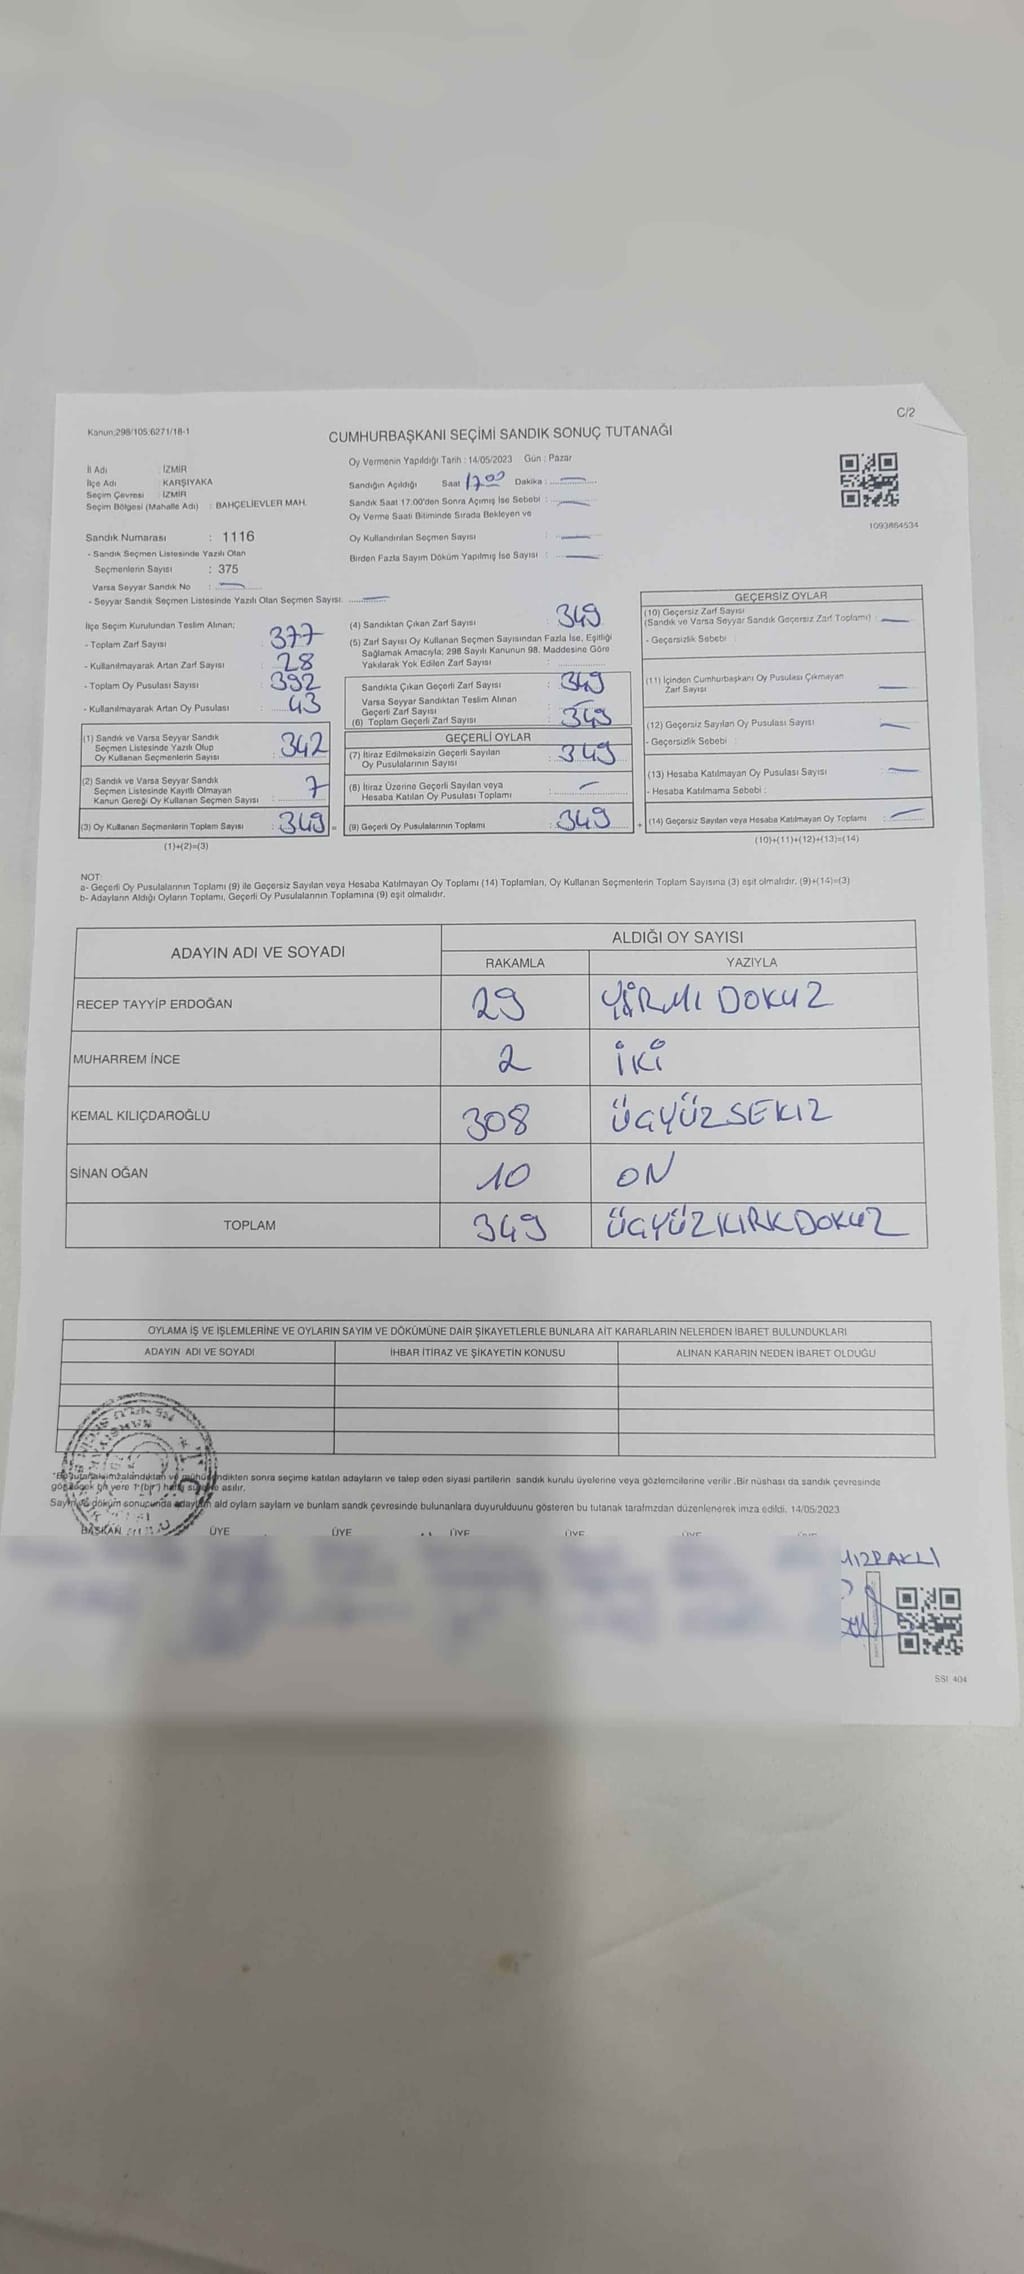 C/2
Kanun:298/105.6271/18-1
CUMHURBAŞKANI SEÇİMİ SANDIK SONUÇ TUTANAĞI
İl Adı : İZMİR
İlçe Adı : KARŞIYAKA
Seçim Çevresi : İZMİR
Seçim Bölgesi (Mahalle Adı) : BAHÇELİEVLER MAH.
Oy Vermenin Yapıldığı Tarih : 14/05/2023 Gün : Pazar
Sandığın Açıldığı Saat 17.00 Dakika :
Sandık Saat 17.00'den Sonra Açımış İse Sebebi :
Oy Verme Saati Bitiminde Sırada Bekleyen ve
Oy Kullandırılan Seçmen Sayısı :
Birden Fazla Sayım Döküm Yapılmış İse Sayısı :
1093864534
Sandık Numarası : 1116
- Sandık Seçmen Listesinde Yazılı Olan
Seçmenlerin Sayısı : 375
Varsa Seyyar Sandık No :
- Seyyar Sandık Seçmen Listesinde Yazılı Olan Seçmen Sayısı:
İlçe Seçim Kurulundan Teslim Alınan;
- Toplam Zarf Sayısı : 377
- Kullanılmayarak Artan Zarf Sayısı : 28
- Toplam Oy Pusulası Sayısı : 392
- Kullanılmayarak Artan Oy Pusulası : 43
(1) Sandık ve Varsa Seyyar Sandık
Seçmen Listesinde Yazılı Olup
Oy Kullanan Seçmenlerin Sayısı : 342
(2) Sandık ve Varsa Seyyar Sandık
Seçmen Listesinde Kayıtlı Olmayan
Kanun Gereği Oy Kullanan Seçmen Sayısı : 7
(3) Oy Kullanan Seçmenlerin Toplam Sayısı : 349 =
(1)+(2)=(3)
(4) Sandıktan Çıkan Zarf Sayısı : 349
(5) Zarf Sayısı Oy Kullanan Seçmen Sayısından Fazla İse, Eşitliği
Sağlamak Amacıyla; 298 Sayılı Kanunun 98. Maddesine Göre
Yakılarak Yok Edilen Zarf Sayısı :
Sandıkta Çıkan Geçerli Zarf Sayısı : 349
Varsa Seyyar Sandıktan Teslim Alınan
Geçerli Zarf Sayısı :
(6) Toplam Geçerli Zarf Sayısı : 349
GEÇERLİ OYLAR
(7) İtiraz Edilmeksizin Geçerli Sayılan
Oy Pusulalarının Sayısı : 349
(8) İtiraz Üzerine Geçerli Sayılan veya
Hesaba Katılan Oy Pusulası Toplamı :
(9) Geçerli Oy Pusulalarının Toplamı : 349 +
GEÇERSİZ OYLAR
(10) Geçersiz Zarf Sayısı
(Sandık ve Varsa Seyyar Sandık Geçersiz Zarf Toplamı) :
- Geçersizlik Sebebi :
(11) İçinden Cumhurbaşkanı Oy Pusulası Çıkmayan
Zarf Sayısı
(12) Geçersiz Sayılan Oy Pusulası Sayısı :
- Geçersizlik Sebebi :
(13) Hesaba Katılmayan Oy Pusulası Sayısı :
- Hesaba Katılmama Sebebi :
(14) Geçersiz Sayılan veya Hesaba Katılmayan Oy Toplamı :
(10)+(11)+(12)+(13)=(14)
NOT:
a- Geçerli Oy Pusulalarının Toplamı (9) ile Geçersiz Sayılan veya Hesaba Katılmayan Oy Toplamı (14) Toplamları, Oy Kullanan Seçmenlerin Toplam Sayısına (3) eşit olmalıdır. (9)+(14)=(3)
b- Adayların Aldığı Oyların Toplamı, Geçerli Oy Pusulalarının Toplamına (9) eşit olmalıdır.
ADAYIN ADI VE SOYADI
ALDIĞI OY SAYISI
RAKAMLA YAZIYLA
RECEP TAYYİP ERDOĞAN 29 YİRMİ DOKUZ
MUHARREM İNCE 2 İKİ
KEMAL KILIÇDAROĞLU 308 ÜÇYÜZSEKIZ
SİNAN OĞAN 10 ON
TOPLAM 349 ÜÇYÜZKIRKDOKUZ
OYLAMA İŞ VE İŞLEMLERİNE VE OYLARIN SAYIM VE DÖKÜMÜNE DAİR ŞİKAYETLERLE BUNLARA AİT KARARLARIN NELERDEN İBARET BULUNDUKLARI
ADAYIN ADI VE SOYADI İHBAR İTİRAZ VE ŞİKAYETİN KONUSU ALINAN KARARIN NEDEN İBARET OLDUĞU
sonra seçime katılan adayların ve talep eden siyasi partilerin sandık kurulu üyelerine veya gözlemcilerine verilir .Bir nüshası da sandık çevresinde
yere 1 (bir) asılır.
döküm sonuçunda ald oyların sayların ve bunlam sandk çevresinde bulunanlara duyurulduunu gösteren bu tutanak tarafmzdan düzenlenerek imza edildi. 14/05/2023
BAŞKAN ÜYE ÜYE ÜYE ÜYE
MIZRAKLI
SSI 404